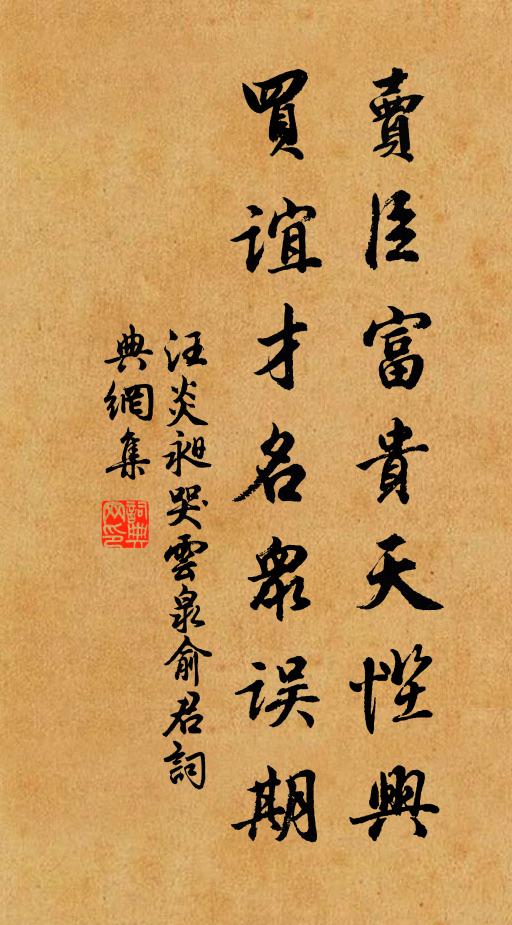 賣臣富貴天慳與
買誼才名衆误期
汪炎昶哭雲泉俞君詞
典網集
詞典网印